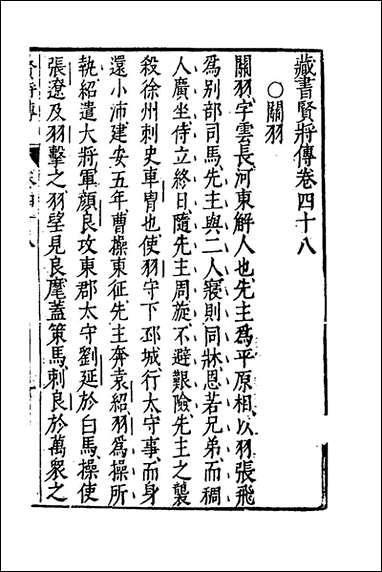 藏書賢將傳卷四十八
○關羽
關羽字雲長河東解人也先主為平原相以羽張飛
為別部司馬先主與二人寢則同牀恩若兄弟而稠
人廣坐侍立終日隨先主周旋不避艱險先主之襲
殺徐州刺史車冑也使羽守下邳城行太守事而身
還小沛建安五年曹操東征先主奔袁紹羽為操所
執紹遣大將軍顏良攻東郡太守劉延於白馬操使
張遼及羽擊之羽望見良麾蓋策馬刺良於萬眾之